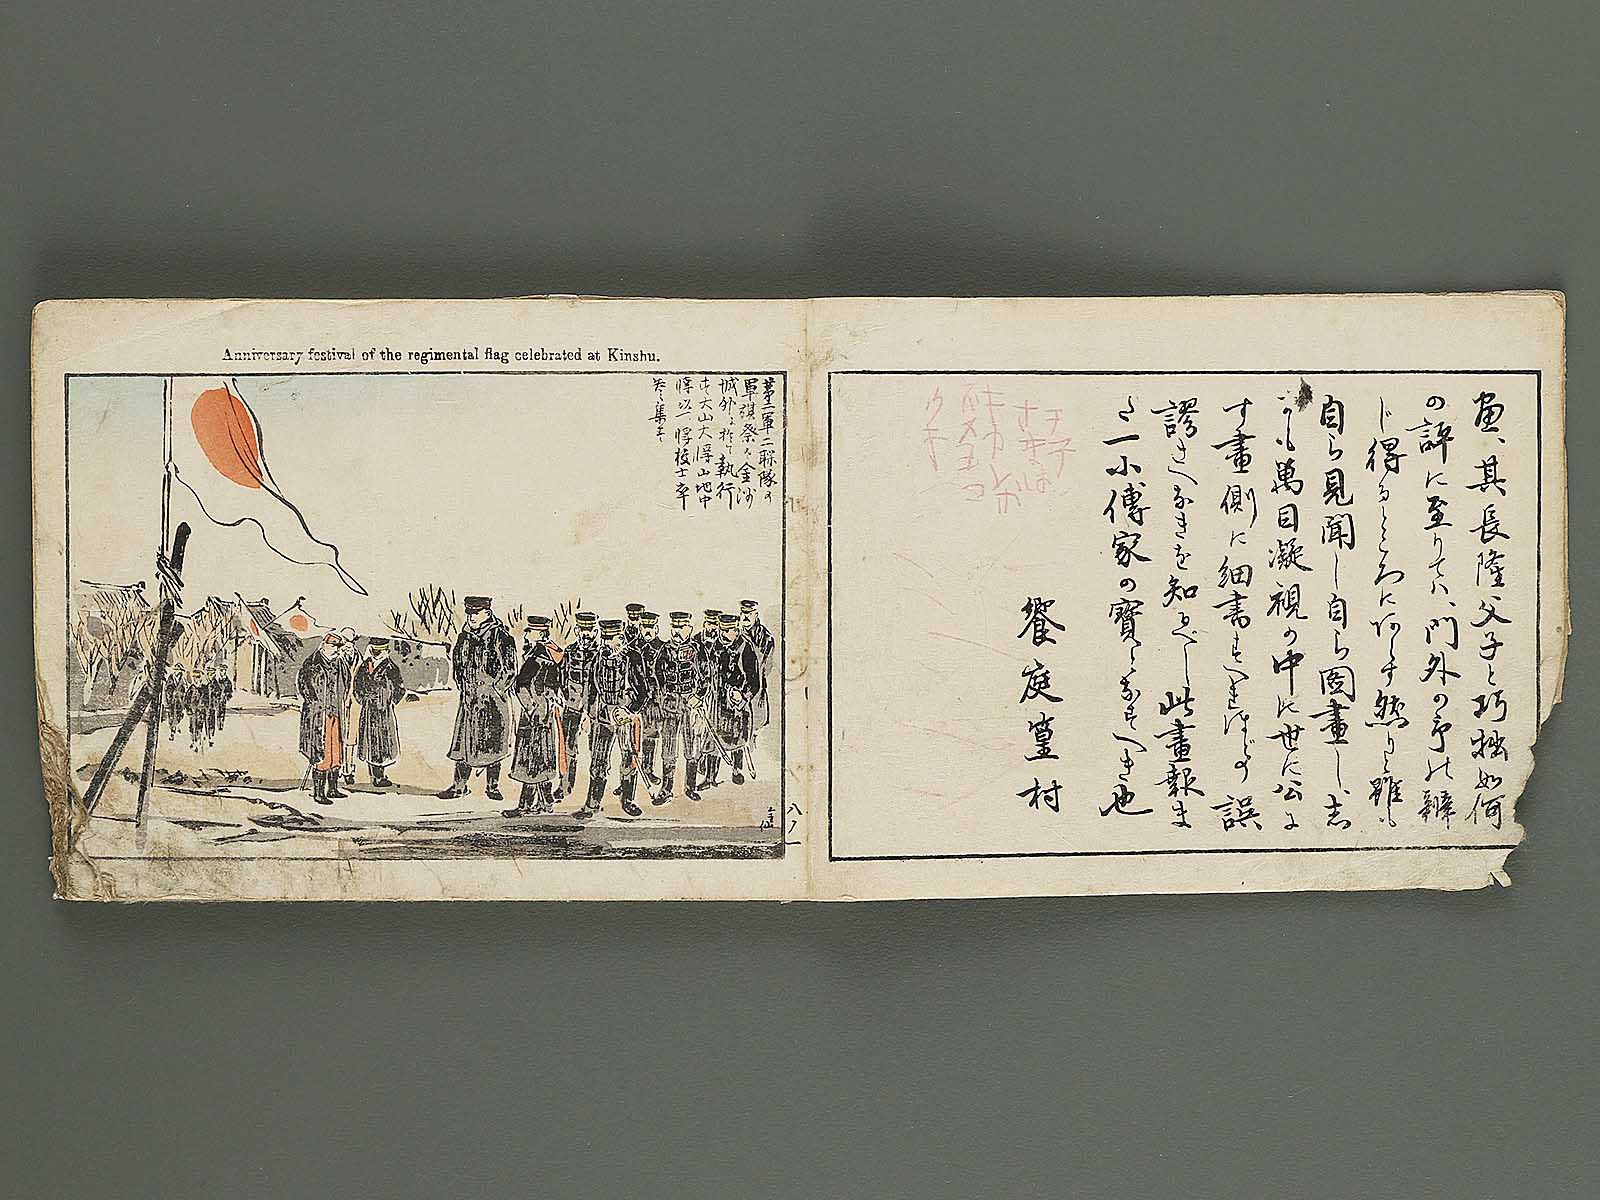 画、其長隆父子と巧拙如何
の評に至りては、門外の予の辨
じ得るところにあらず然りと雖も
自ら見聞し自ら図畫し、志
かも萬目凝視の中に世に公に
す畫側に細書すへきほどの誤
謬さへなきを知るべし此畫報ま
た一小傳家の寶となすべき也
饗庭篁村
Anniversary festival of the regimental flag celebrated at Kinshu.
第二軍二聯隊の
軍旗祭を金州
城外に於て執行
す大山大将山地中
将以下将校士卒
八ノ一